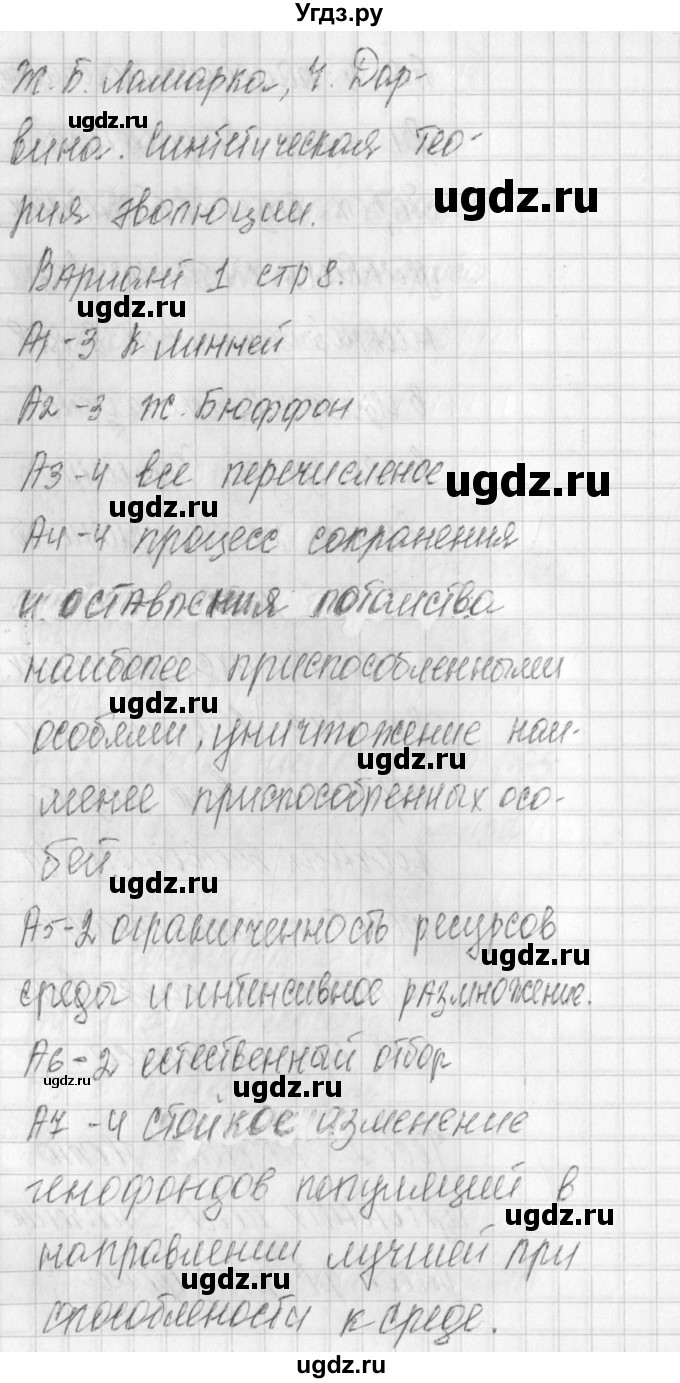 Угдз.ру
Ж. Б. Ламарка, Ч. Дар-
ugdz.ru
вина. Синтетическая тео-
ugdz.ru
рия эволюции.
Вариант 1 стр 8.
ugdz.ru
А1-3 К Линней
А2-3 Ж. Бюффон
А3-4 все перечисленое
ugdz.ru
ugdz.ru
А4-4 процесс сохранения
и оставления потомства
наиболее приспособленными
ugdz.ru
особями, уничтожение наи-
ugdz.ru
менее приспособленных осо-
бей.
ugdz.ru
А5-2 ограниченность ресурсов
ugdz.ru
среды и интенсивное размножение.
А6-2 естественный отбор
ugdz.ru
ugdz.ru
А7-4 стойкое изменение
генофондов популяций в
ugdz.ru
направлении лучшей при
ugdz.ru
способлености к среде.
ugdz.ru